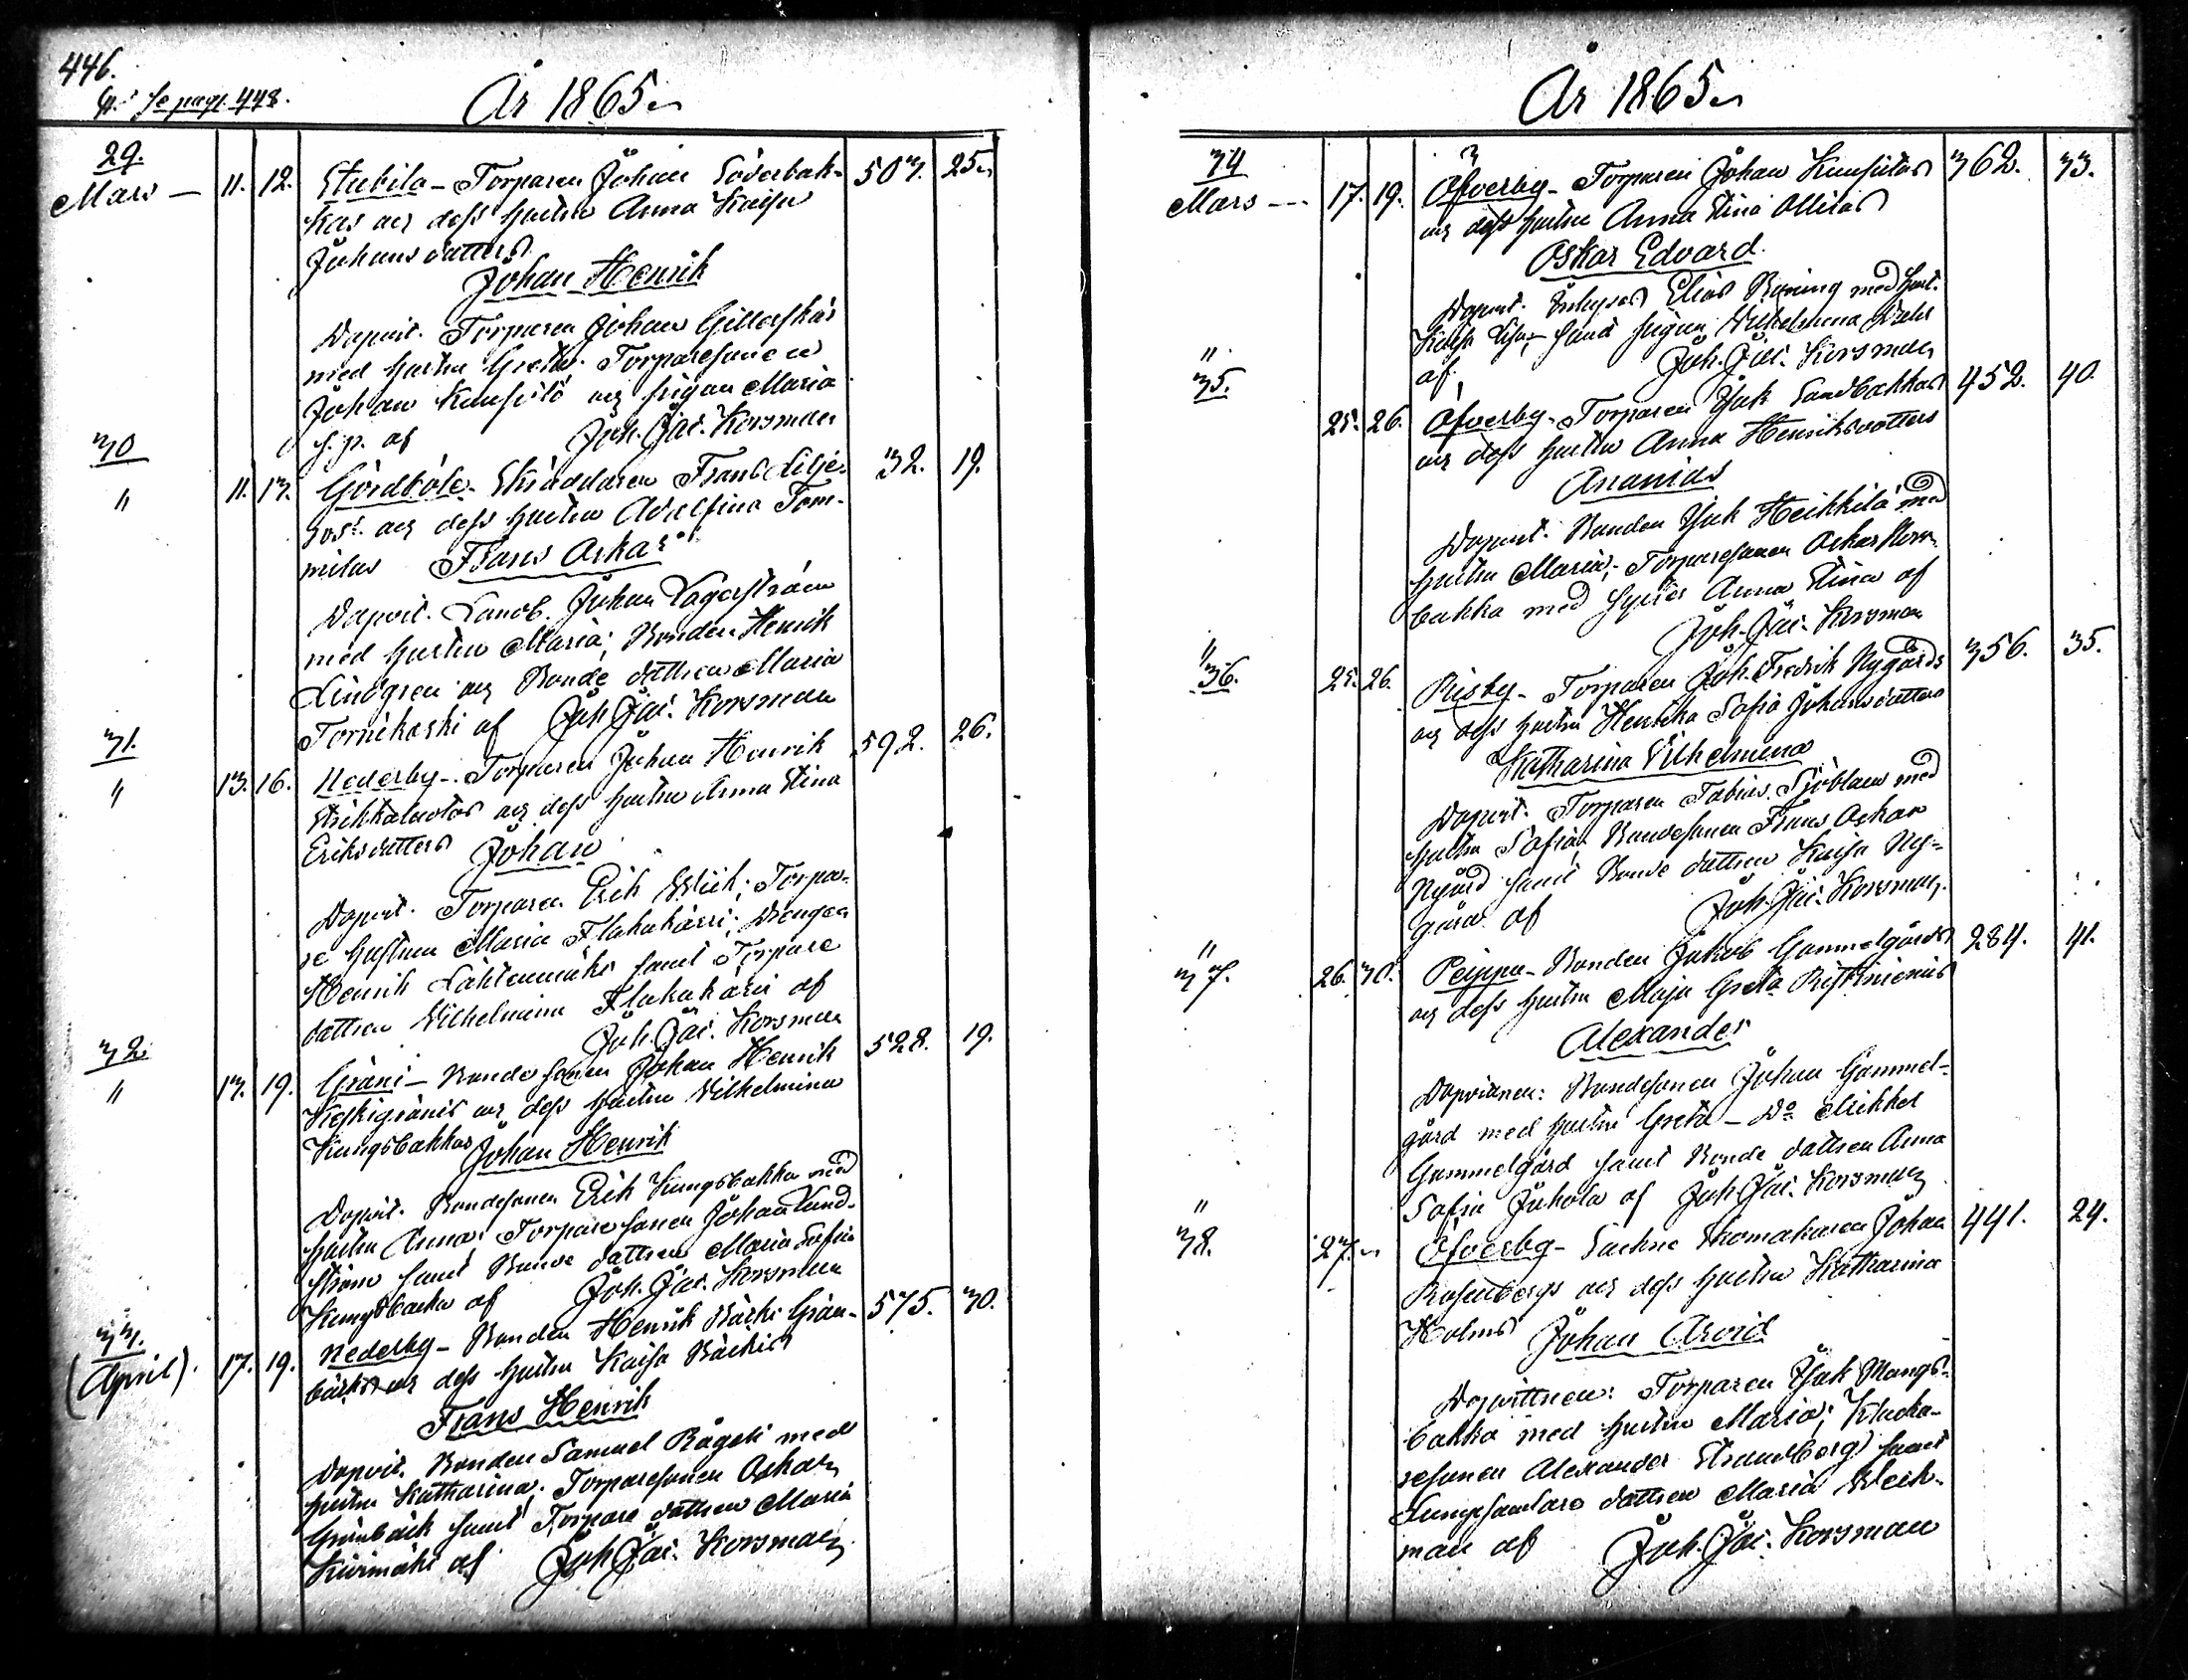 446.
Se pag. 448.
År 1865
29.
Mars — 11. 12. Stubila – Torparen Johan Söderbak-
kas och dess hustru Anna Kaisa
Johansdotters
Johan Henrik
Dopvit. Torparen Johan
med hustru Greta; Torparesonen
Johan och pigan Maria
af Joh. Jac. Korsman
507. 25
30
" 11. 13. Gördböle – Skräddaren Frans Lilje-
och dess hustru Adolfina Tom-
milas Frans Oskar
Dopvit. Landb. Johan Lagerström
med hustru Maria; Bonden Henrik
Lindgren och Bonde dottren Maria
Tornikoski af Joh. Jac. Korsman
32. 19.
31.
" 13. 16. Nederby – Torparen Johan Henrik
och dess hustru Anna Stina
Eriksdotters Johan
Dopvit. Torparen Erik Wiik; Torpa-
re hustrun Maria Flakakärri; Drengen
Henrik Lähteenmäki samt Torpare
dottren Wilhelmina Flakakärri af
Joh. Jac. Korsman
592. 26.
32
" 13. 19. Gräni – Bonde sonen Johan Henrik
Keskigränis och dess hustru Vilhelmina
Kungsbackas Johan Henrik
Dopvit. Bondesonen Erik Kungsbakka med
hustru Anna; Torpare sonen Johan Lund-
ström samt Bonde dottren Maria Sofia
Kungsbacka af Joh. Jac. Korsman
528. 19.
33.
(April). 17. 19. Nederby – Bonden Henrik Bäcki Grän-
bäcks och dess hustru Kaisa Bäckis
Frans Henrik
Dopvit. Bonden Samuel Rågeli med
hustru Katharina; Torparesonen Oskar
Grönbäck samt Torpare dottren Maria
Kivimäki af Joh. Jac. Korsman
575. 30.
År 1865
34
Mars — 17. 19. Öfverby – Torparen Johan
och dess hustru Anna Stina Ollilas
Oskar Edvard.
Dopvit. Inhyses Elias Rining med hust.
Kaisa Lisa; samt pigan Vilhelmina
af Joh. Jac. Korsman
362. 33.
"
35. 25. 26. Öfverby – Torparen Isak Sandbackas
och dess hustru Anna Henriksdotters
Ananias
Dopvit. Bonden Isak Heikkilä med
hustru Maria; Torparesonen Oskar Norr-
bakka med syster Anna Stina af
Joh. Jac. Korsman
452. 40.
"
36. 25. 26. Risby – Torparen Joh. Fredrik Nygårds
och dess hustru Henrika Sofia Johansdotters
Katharina Vilhelmina
Dopvit. Torparen Tobias Sjöblom med
hustru Sofia; Bondesonen Frans Oskar
Nygård samt Bonde dottren Kaisa Ny-
gård af Joh. Jac. Korsman.
356. 35.
"
37. 26. 30. Peippu – Bonden Jakob Gammelgårds
och dess hustru Maja Greta Ristiniemis
Alexander
Dopvittnen: Bondesonen Johan Gammel-
gård med hustru Greta – Do Mikkel
Gammelgård samt Bonde dottren Anna
Sofia Jukola af Joh. Jac. Korsman
284. 41.
"
38. 27. Öfverby – Sockne Skomakaren Johan
Rosenbergs och dess hustru Katharina
Holms Johan Arvid
Dopvittnen: Torparen Isak Mangs-
bakka med hustru Maria; Klocka-
resonen Alexander Strandberg samt
dottren Maria Week-
man af Joh. Jac. Korsman
441. 24.